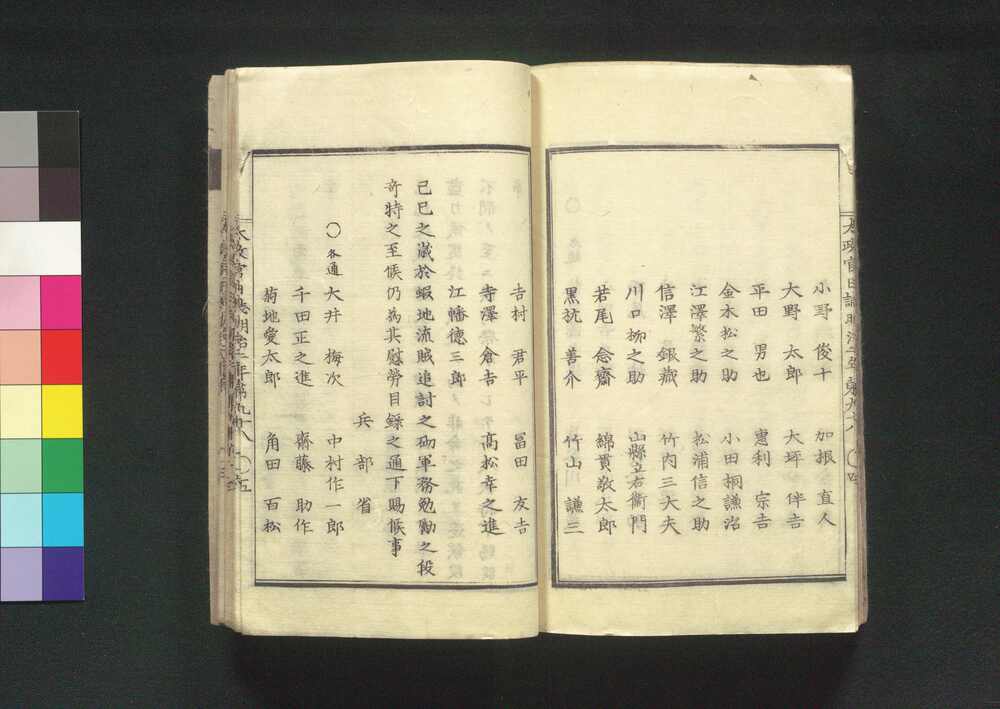 小野 俊十 加根 直人
大野 太郎 大坪 伴吉
平田 男也 憲利 宗吉
金木松之助 小田桐謙治
江澤繁之助 松浦信之助
信澤 銀藏 竹内三大夫
川口栁之助 山縣立右衞門
若尾 念齋 綿貫敬太郎
黒 善介 竹山川 謙三
吉村 君平 冨田 友吉
寺澤 倉吉 髙松幸之進
江幡德三郎
己巳之歳於蝦地流賊追討之砌軍務勉勵之段
竒特之至候仍為其慰勞目錄之通下賜候事
兵部省
〇各通 大井 梅次 中村作一郎
千田正之進 齋藤 助作
菊地愛太郎 角田 百松
太政官日誌明治二年第九十八 〇五